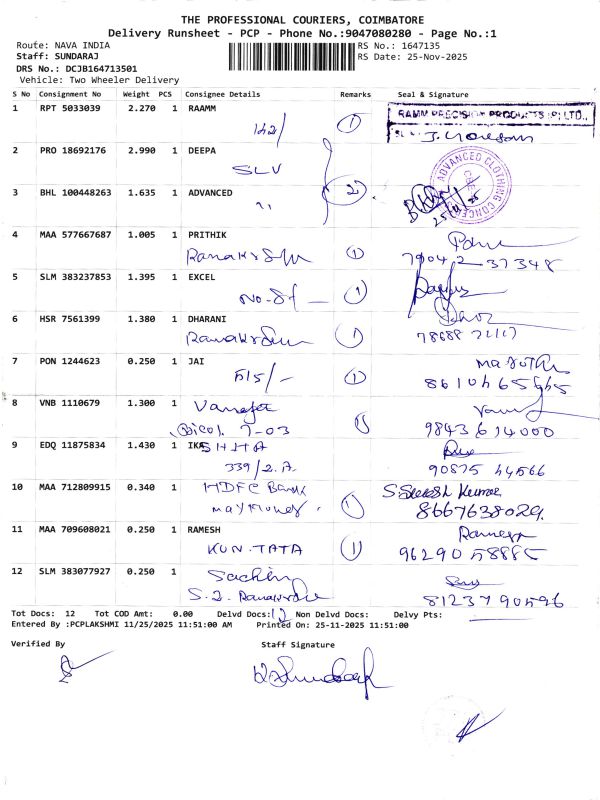 THE PROFESSIONAL COURIERS, COIMBATORE
Delivery Runsheet - PCP - Phone No.:9047080280 - Page No.:1
Route: NAVA INDIA RS No.: 1647135
Staff: SUNDARAJ RS Date: 25-Nov-2025
DRS No.: DCJB164713501
Vehicle: Two Wheeler Delivery
S No Consignment No Weight PCS Consignee Details Remarks Seal & Signature
1 RPT 5033039 2.270 1 RAAMM
RAMM PRECISION PRODUCTS (P) LTD.,
142/ 1
2 PRO 18692176 2.990 1 DEEPA
SLV
ADVANCED CLOTHING CONCEPT
CBE
3 BHL 100448263 1.635 1 ADVANCED 2
" 25/11/25
4 MAA 577667687 1.005 1 PRITHIK
1 79042-37348
5 SLM 383237853 1.395 1 EXCEL
NO-8f 1
6 HSR 7561399 1.380 1 DHARANI
1
7 PON 1244623 0.250 1 JAI
515/- 1
8 VNB 1110679 1.300 1 Vaneja
7-03 1 98436 14000
9 EDQ 11875834 1.430 1 IKA
339/2.A. 90875 44566
10 MAA 712809915 0.340 1 HDFC Bank S. Suresh Kumar
1 8667638029
11 MAA 709608021 0.250 1 RAMESH Ramesh
KUN.TATA 1 96290 58885
12 SLM 383077927 0.250 1 Sachin
81237 90596
Tot Docs: 12 Tot COD Amt: 0.00 Delvd Docs: 12 Non Delvd Docs: Delvy Pts:
Entered By :PCPLAKSHMI 11/25/2025 11:51:00 AM Printed On: 25-11-2025 11:51:00
Verified By Staff Signature